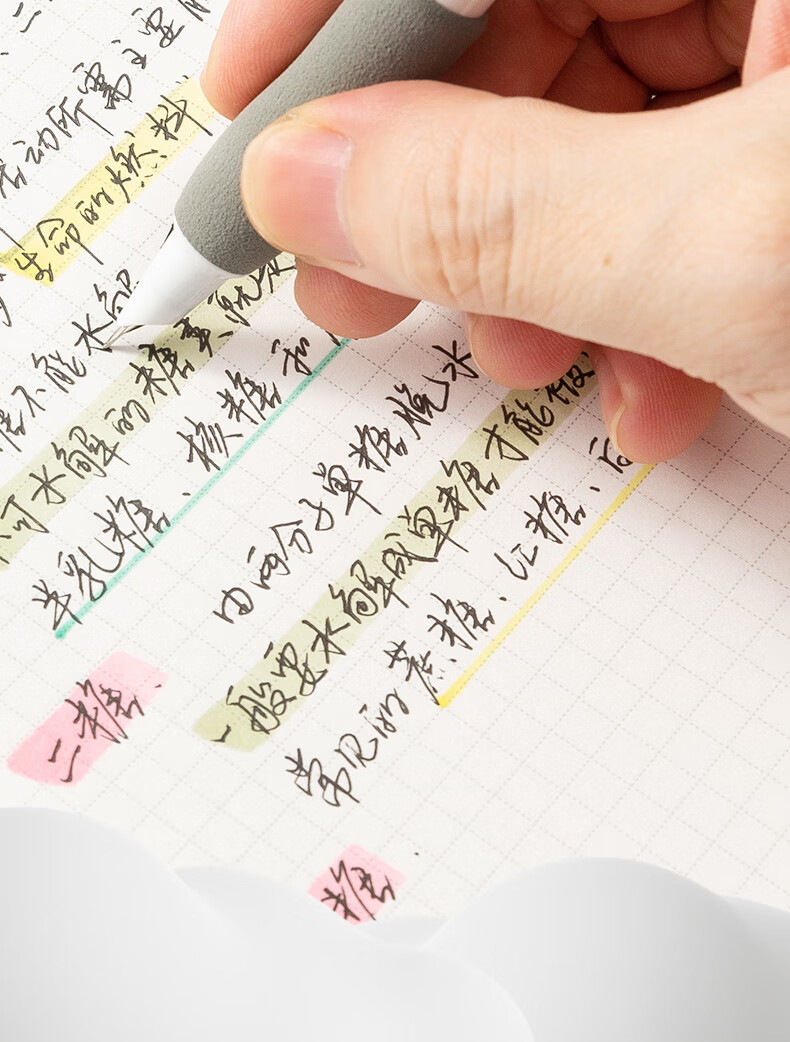 活动所需主要
生命的燃料
不能水解
可水解的糖类就
半乳糖、核糖和
二糖.
由两分子单糖脱水
一般要水解成单糖才能被
常见的蔗糖、
糖